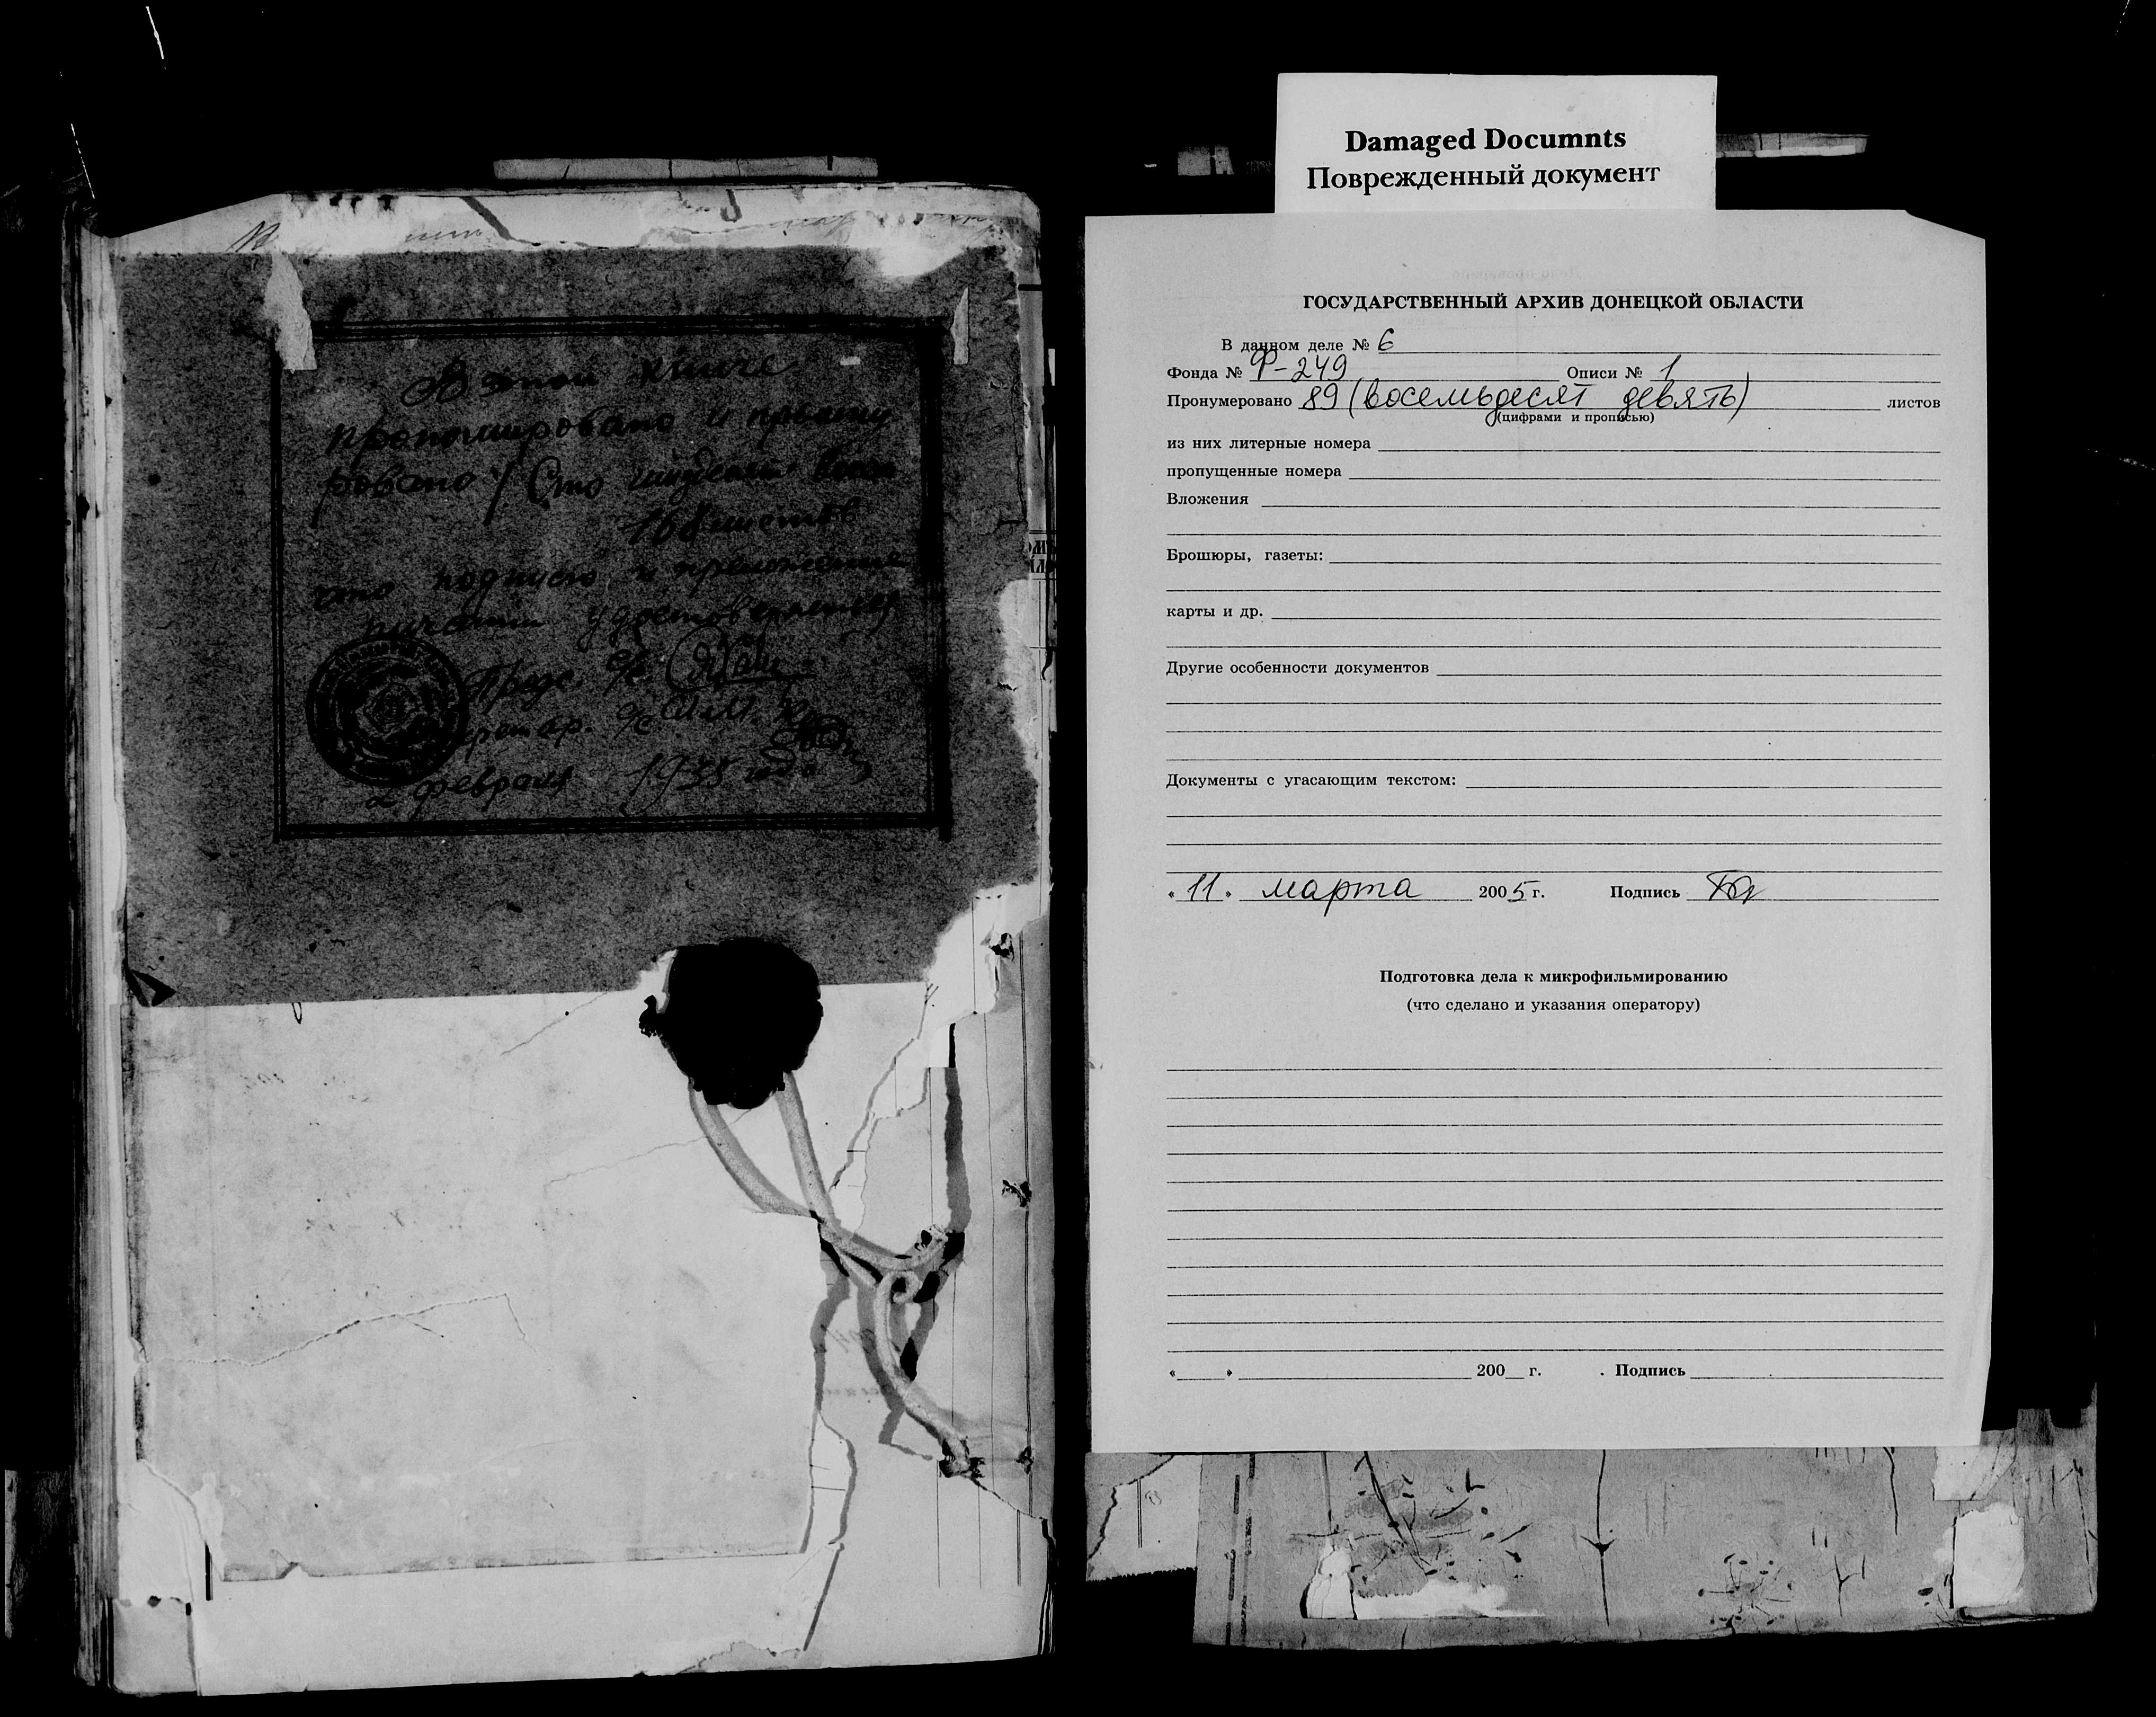 В этой книге
пронумеровано и прошну
ровано / Сто шестьдесят восем
168 листов
что подписью и приложением
печати удостоверяется
Предс. с/с
Секретар. с/с
2 февраля 1935 года
Damaged Documnts
Поврежденный документ
ГОСУДАРСТВЕННЫЙ АРХИВ ДОНЕЦКОЙ ОБЛАСТИ
В данном деле № 6
Фонда № Ф-249 Описи № 1
Пронумеровано 89 (восемьдесят девять) листов
(цифрами и прописью)
из них литерные номера
пропущенные номера
Вложения
Брошюры, газеты:
карты и др.
Другие особенности документов
Документы с угасающим текстом:
« 11 » марта 2005 г. Подпись
Подготовка дела к микрофильмированию
(что сделано и указания оператору)
« » 200 г. Подпись